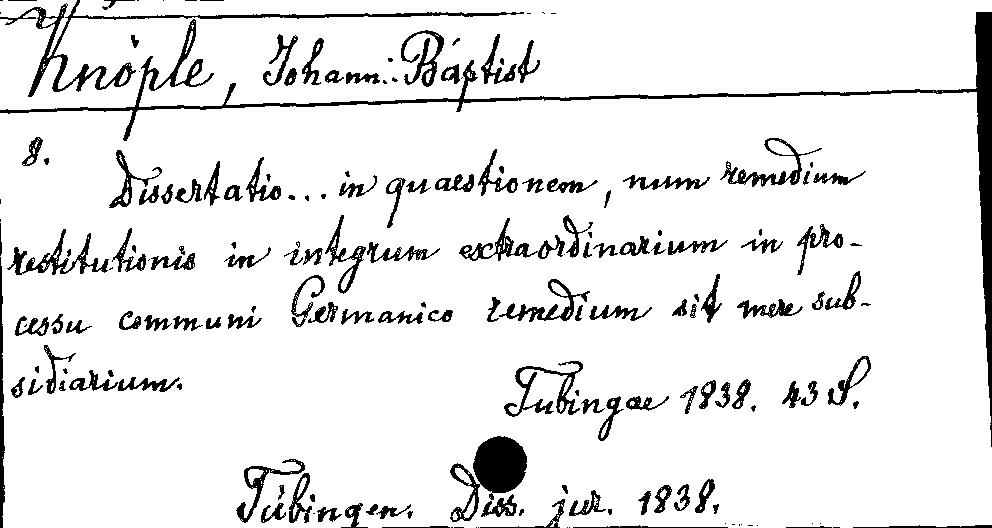 Knöple, Johann: Baptist
8.
Dissertatio... in quaestionem, num remedium
restitutionis in integrum extraordinarium in pro-
cessu communi Germanico remedium sit mere sub-
sidiarium.
Tubingae 1838. 43 S.
Tübingen. Diss. jur. 1838.